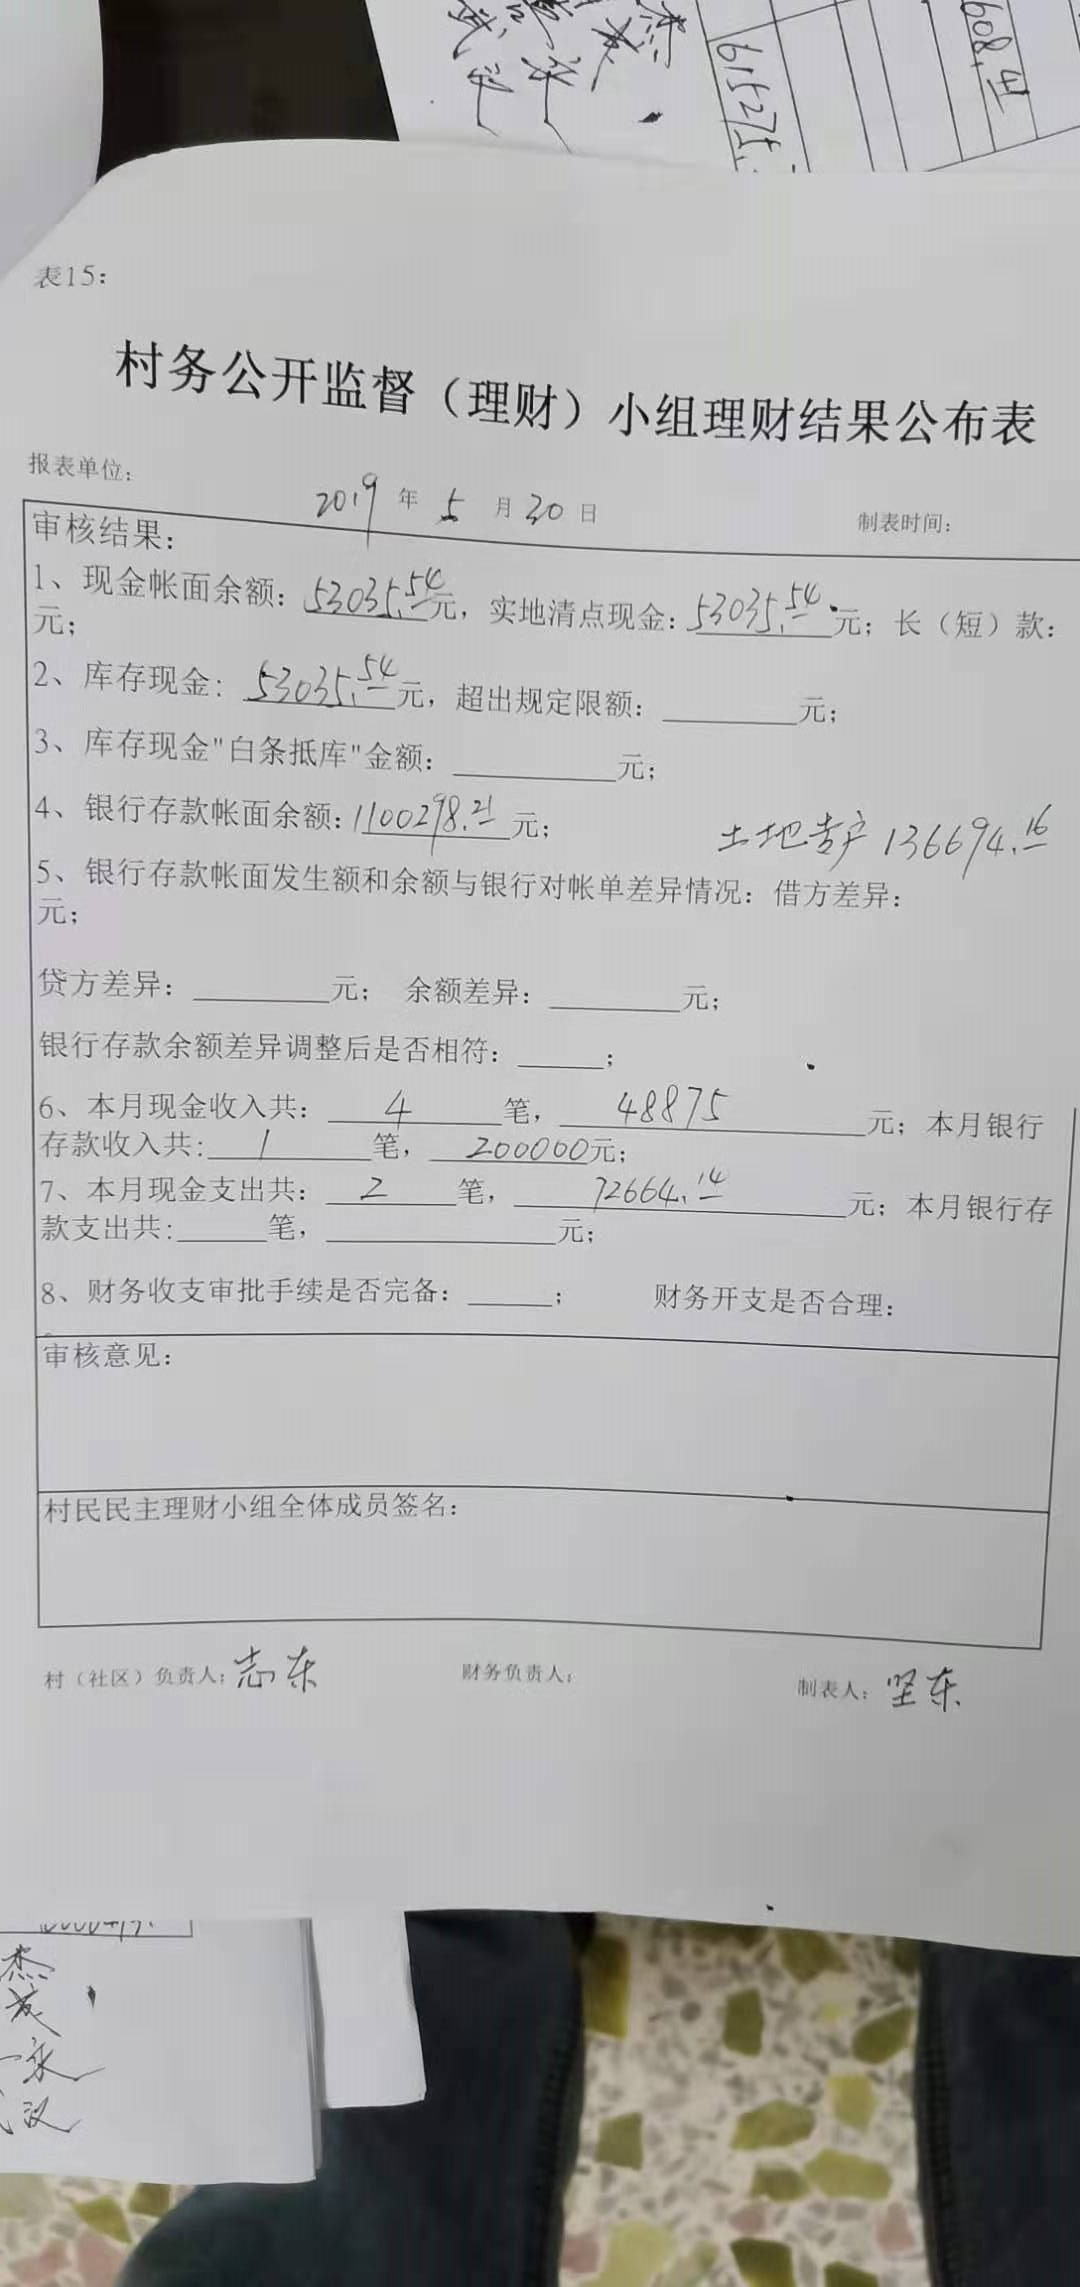 608.41
615275.
表15：
村务公开监督（理财）小组理财结果公布表
报表单位：
2019年5月30日 制表时间：
审核结果：
1、现金帐面余额：53035.54元，实地清点现金：53035.54元；长（短）款：
元；
2、库存现金：53035.54元，超出规定限额：______元；
3、库存现金"白条抵库"金额：______元；
4、银行存款帐面余额：1100298.21元； 土地专户136694.16
5、银行存款帐面发生额和余额与银行对帐单差异情况：借方差异：
元；
贷方差异：______元； 余额差异：______元；
银行存款余额差异调整后是否相符：______；
6、本月现金收入共：4笔，48875元；本月银行
存款收入共:1笔，200000元；
7、本月现金支出共：2笔，72664.14元；本月银行存
款支出共:______笔，______元；
8、财务收支审批手续是否完备：______； 财务开支是否合理：
审核意见：
村民民主理财小组全体成员签名：
村（社区）负责人：志东 财务负责人： 制表人：坚东
杰
汉